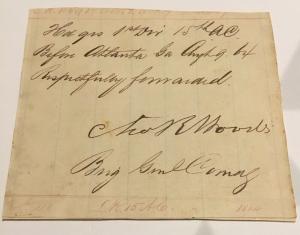 Hd qrs 1st Div 15th A.C.
Before Atlanta Ga Augt 9. 64
Respectfully forwarded.
Chs R Woods
Brig Genl Comdg
15 A.C.